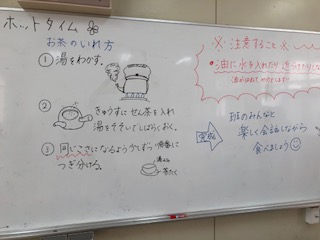 ホットタイム
お茶のいれ方
① 湯をわかす。
② きゅうすにせん茶を入れ
湯をそそいでしばらくおく。
③ 同じこさになるよう少しずつ順番に
つぎ分ける。
湯のみ
茶たく
※ 注意すること ※
実践
班のみんなと
楽しく会話しながら
食べましょう